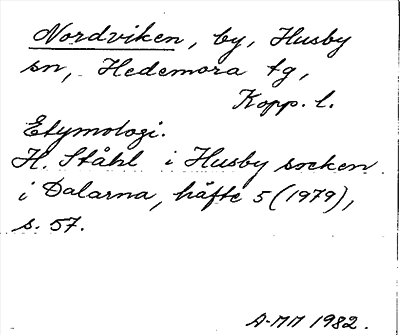 Nordviken, by, Husby
sn, Hedemora tg,
Kopp. l.
Etymologi.
H. Ståhl i Husby socken
i Dalarna, häfte 5 (1979),
s. 57.
A-MM 1982.